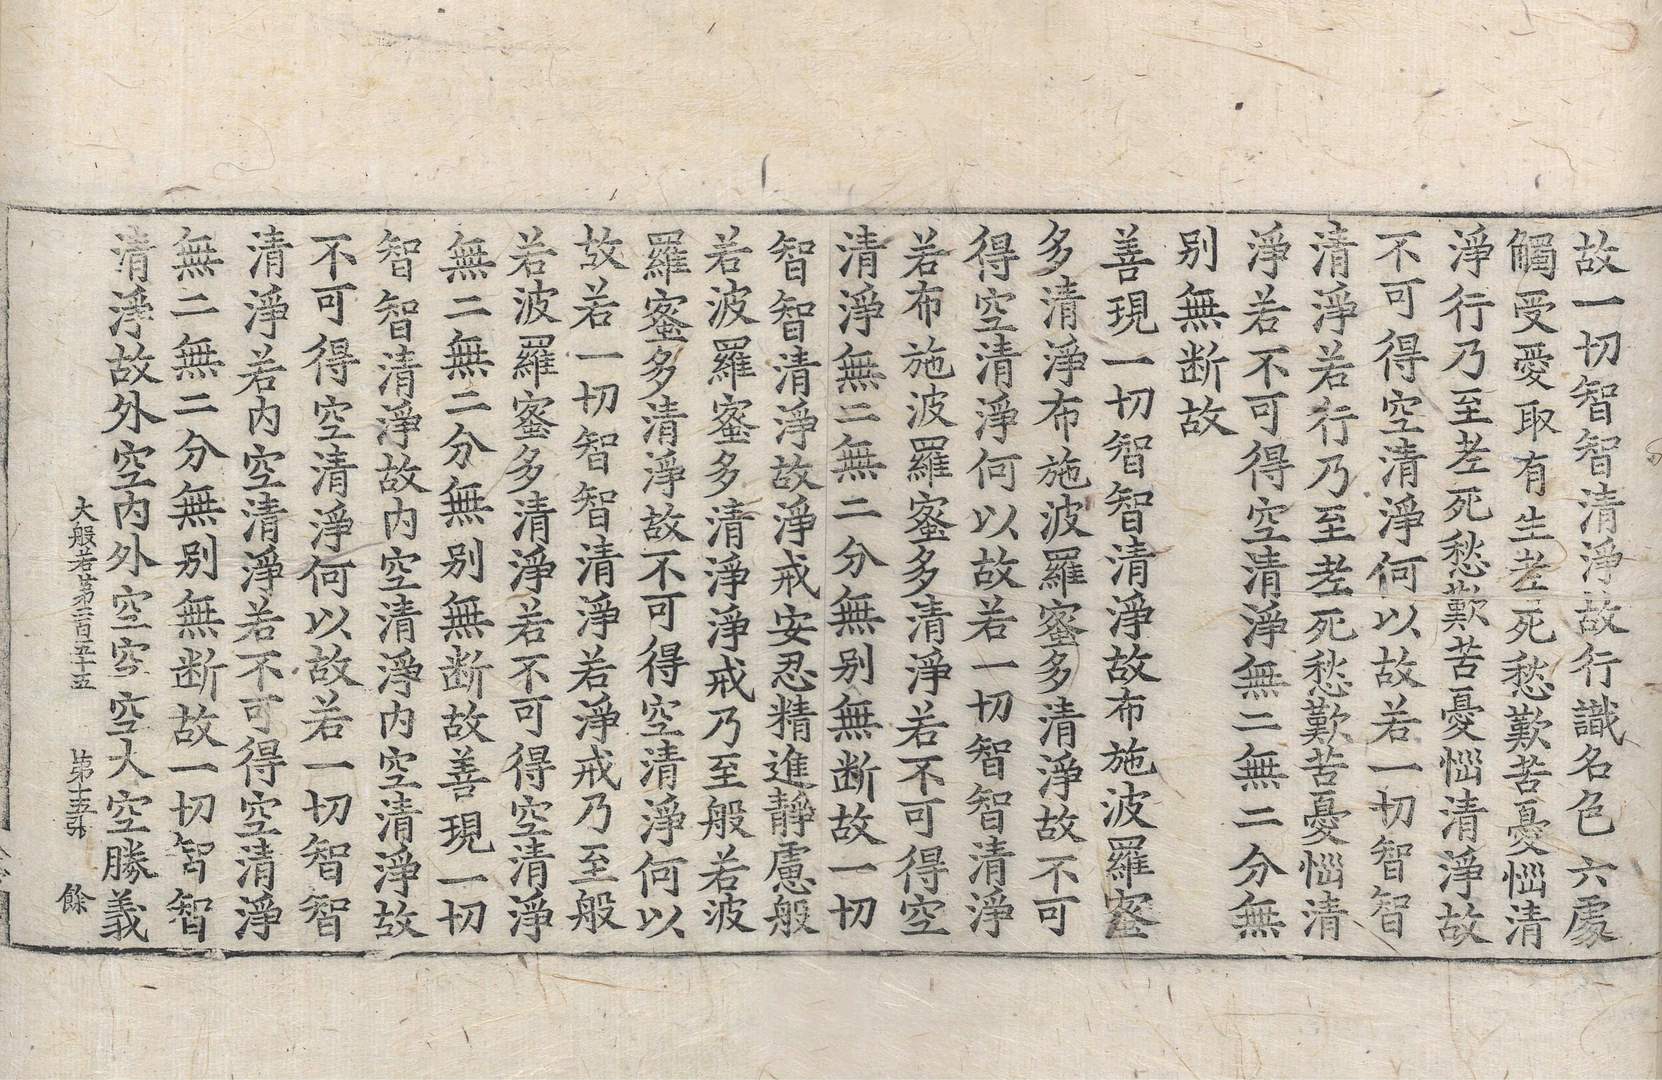 故一切智智清淨故行識名色六處
觸受愛取有生老死愁歎苦憂惱清
淨行乃至老死愁歎苦憂惱清淨故
不可得空清淨何以故若一切智智
清淨若行乃至老死愁歎苦憂惱清
淨若不可得空清淨無二無二分無
别無断故
善現一切智智清淨故布施波羅蜜
多清淨布施波羅蜜多清淨故不可
得空清淨何以故若一切智智清淨
若布施波羅蜜多清淨若不可得空
清淨無二無二分無别無断故一切
智智清淨故淨戒安忍精進靜慮般
若波羅蜜多清淨淨戒乃至般若波
羅蜜多清淨故不可得空清淨何以
故若一切智智清淨若淨戒乃至般
若波羅蜜多清淨若不可得空清淨
無二無二分無别無断故善現一切
智智清淨故内空清淨内空清淨故
不可得空清淨何以故若一切智智
清淨若内空清淨若不可得空清淨
無二無二分無别無断故一切智智
清淨故外空内外空空空大空勝義
大般若第二百五十五 第十五張 餘